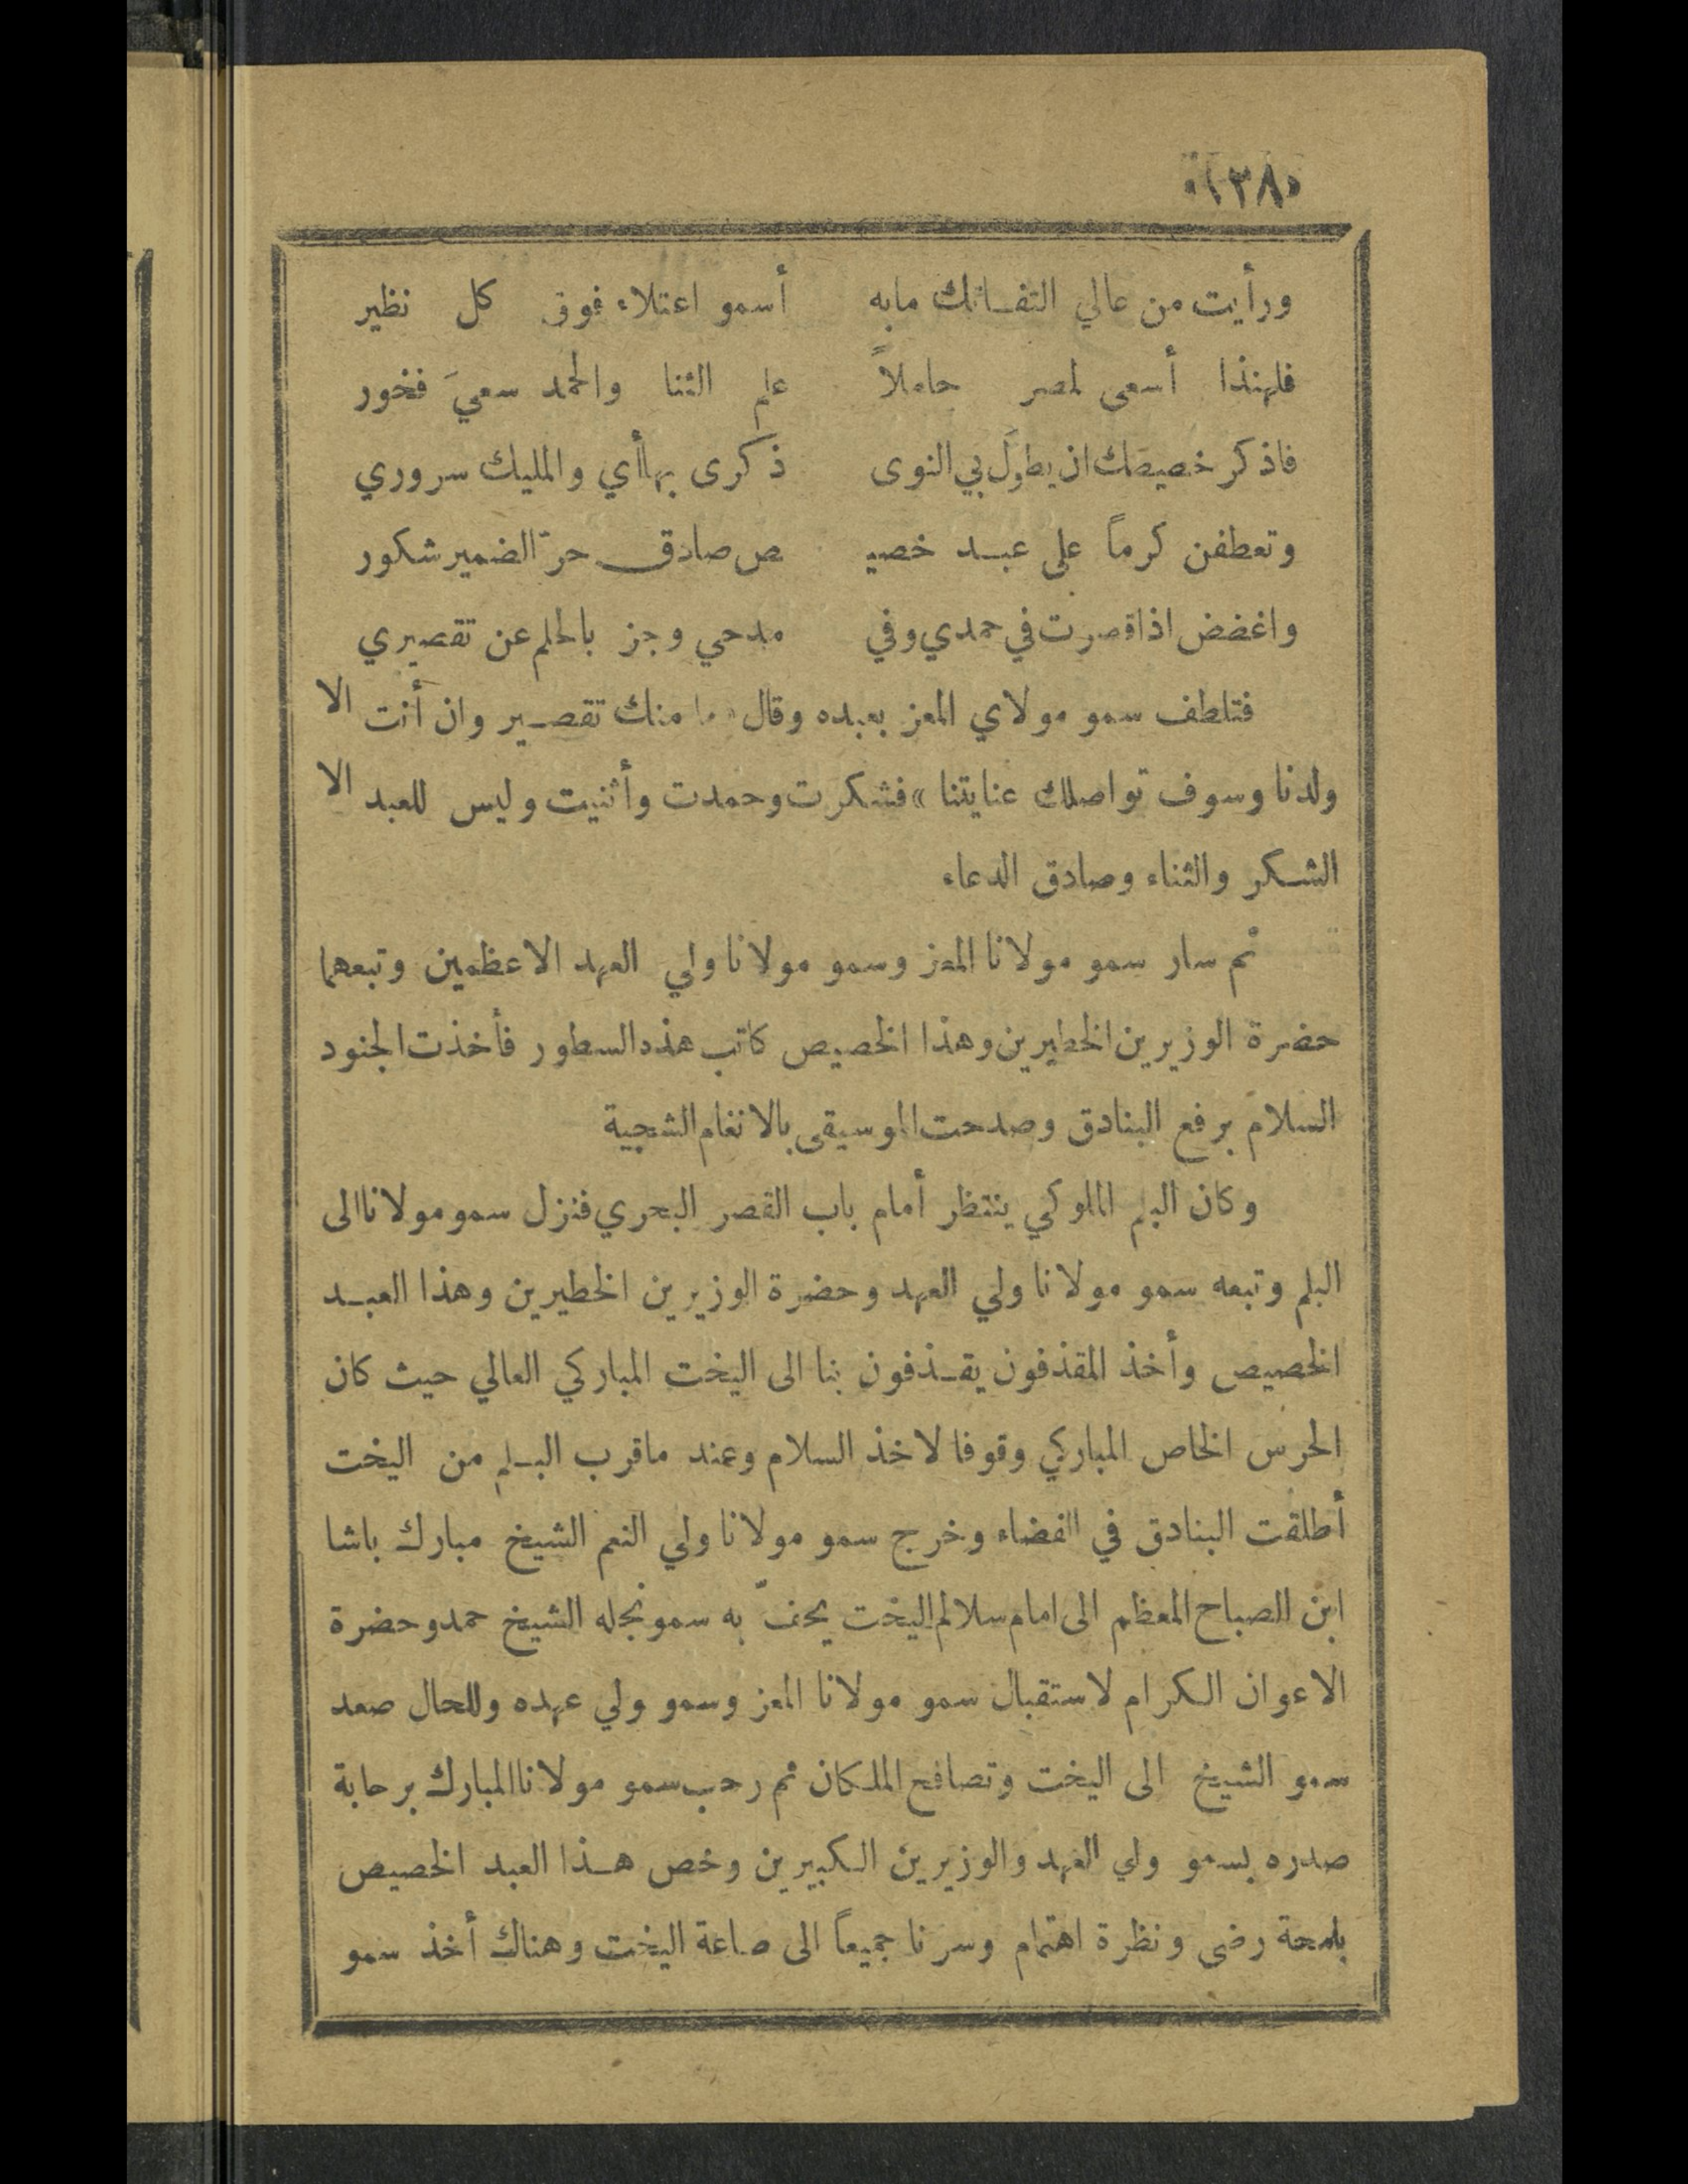 «١٣٨»
ورأيت من عالي التفاتك مابه أسمو اعتلاء فوق كل نظير
فلهذا أسعى لمصر حاملاً علم الثنا والحمد سعيَ فخور
فاذكر خصيصك ان يطولَ بي النوى ذكرى بها أي والمليك سروري
وتعطفن كرماً على عبد خصيـ ـص صادق حرّ الضمير شكور
واغضض اذا قصرت في حمدي وفي مدحي وجز بالحلم عن تقصيري
فتلطف سمو مولاي المعز بعبده وقال «ما منك تقصير وان أنت الا
ولدنا وسوف تواصلك عنايتنا» فشكرت وحمدت وأثنيت وليس للعبد الا
الشكر والثناء وصادق الدعاء
ثم سار سمو مولانا المعز وسمو مولانا ولي العهد الاعظمين وتبعهما
حضرة الوزيرين الخطيرين وهذا الخصيص كاتب هذه السطور فأخذت الجنود
السلام برفع البنادق وصدحت الموسيقى بالانغام الشجية
وكان البلم الملوكي ينتظر أمام باب القصر البحري فنزل سمو مولانا الى
البلم وتبعه سمو مولانا ولي العهد وحضرة الوزيرين الخطيرين وهذا العبد
الخصيص وأخذ المقذفون يقذفون بنا الى اليخت المباركي العالي حيث كان
الحرس الخاص المباركي وقوفا لاخذ السلام وعند ماقرب البلم من اليخت
أطلقت البنادق في الفضاء وخرج سمو مولانا ولي النعم الشيخ مبارك باشا
ابن الصباح المعظم الى امام سلالم اليخت يحفّ به سمو نجله الشيخ حمد وحضرة
الاعوان الكرام لاستقبال سمو مولانا المعز وسمو ولي عهده وللحال صعد
سمو الشيخ الى اليخت وتصافح الملكان ثم رحب سمو مولانا المبارك برحابة
صدره بسمو ولي العهد والوزيرين الكبيرين وخص هذا العبد الخصيص
بلمحة رضى ونظرة اهتمام وسرنا جميعاً الى صاعة اليخت وهناك أخذ سمو